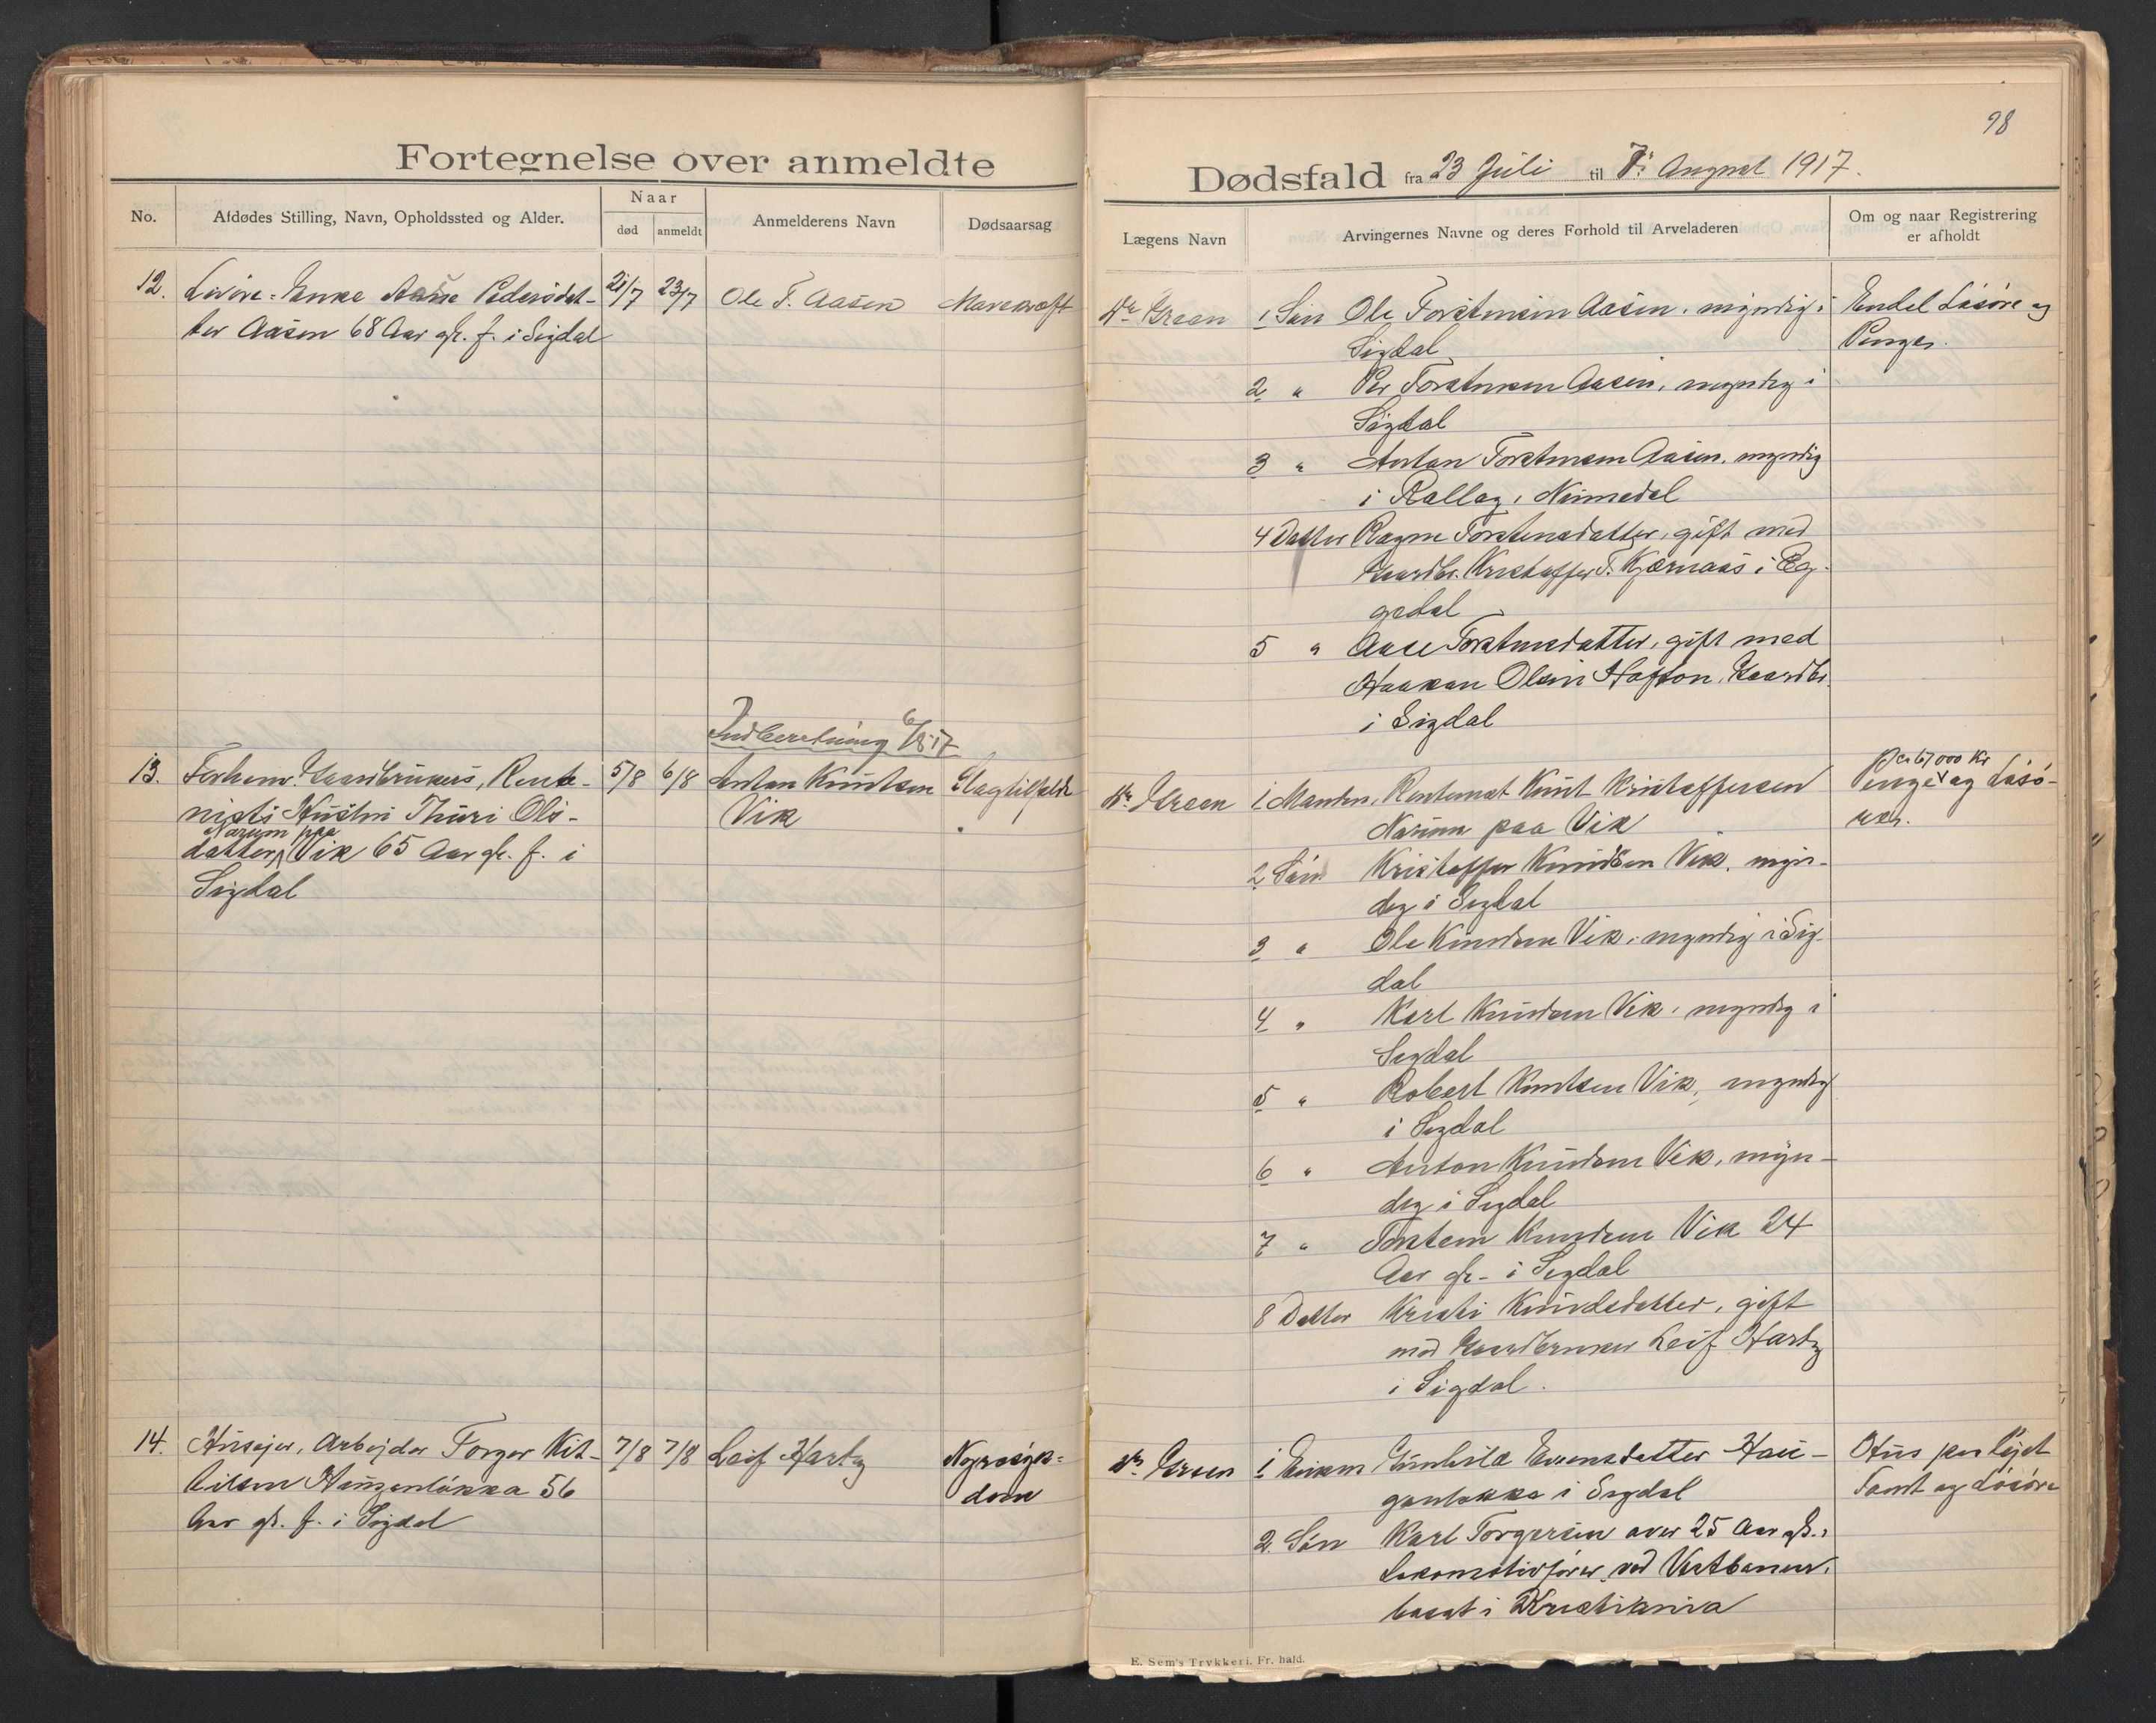 98
Fortegnelse over anmeldte
Dødsfald fra 23 Juli til 7de August 1917.
No.
Afdødes Stilling, Navn, Opholdssted og Alder.
Naar
død
anmeldt
Anmelderens Navn
Dødsaarsag
Lægens Navn
Arvingernes Navne og deres Forhold til Arveladeren
Om og naar Registrering
er afholdt
12. Enke Aasne Pedersdat-
ter Aasen 68 Aar gl. f. i Sigdal
21/7 23/7
Ole T. Aasen
Mavekræft
Dr Green
1 Søn Ole Torstensen Aasen, myndig i
Sigdal
2 " Per Torstensen Aasen, myndig i
Sigdal
3 " Anton Torstensen Aasen, myndig
i Rollag, Numedal
4 Datter Ragne Torstensdatter, gift med
Gaardbr. Kristoffer T. Kjærnaas i Eg-
gedal
5 " Aase Torstensdatter, gift med
Haakon Olsen Hafton, Gaardbr.
i Sigdal
Endel Løsøre og
Penger.
Indberetning 6/8 17
13. Forhenv. Gaardbrukers, Rente-
nists Hustru Thuri Ols-
Narum paa
datter, Vik 65 Aar gl. f. i
Sigdal
5/8 6/8
Anton Knutsen
Vik
Slagtilfælde
Dr. Green
1 Manden, Rentenist Knut Kristoffersen
Narum paa Vik
2 Søn Kristoffer Knudsen Vik, myn-
dig i Sigdal
3 " Ole Knudsen Vik, myndig i Sig-
dal
4 " Karl Knudsen Vik, myndig i
Sigdal
5 " Robert Knutsen Vik, myndig
i Sigdal
6 " Anton Knudsen Vik, myn-
dig i Sigdal
7 " Torstein Knudsen Vik 24
Aar gl. i Sigdal
8 Datter Kristi Knudsdatter, gift
med Gaardbruker Leif Hartz
i Sigdal.
67000 Kr
Penge og Løsø-
rer.
14. Husejer, Arbejder Torger Kit-
tilsen Haugenløkka 56
Aar gl. f. i Sigdal
7/8 7/8
Leif Hartz
Nyresyk-
dom
Dr. Green
1 Enken Gunhild Evensdatter Hau-
genløkka i Sigdal
2 Søn Karl Torgersen over 25 Aar gl.,
Lokomotivfører ved Vestbanen,
bosat i Kristiania
Hus paa lejet
Tomt og Løsøre
E. Sem's Trykkeri, Fr. hald.